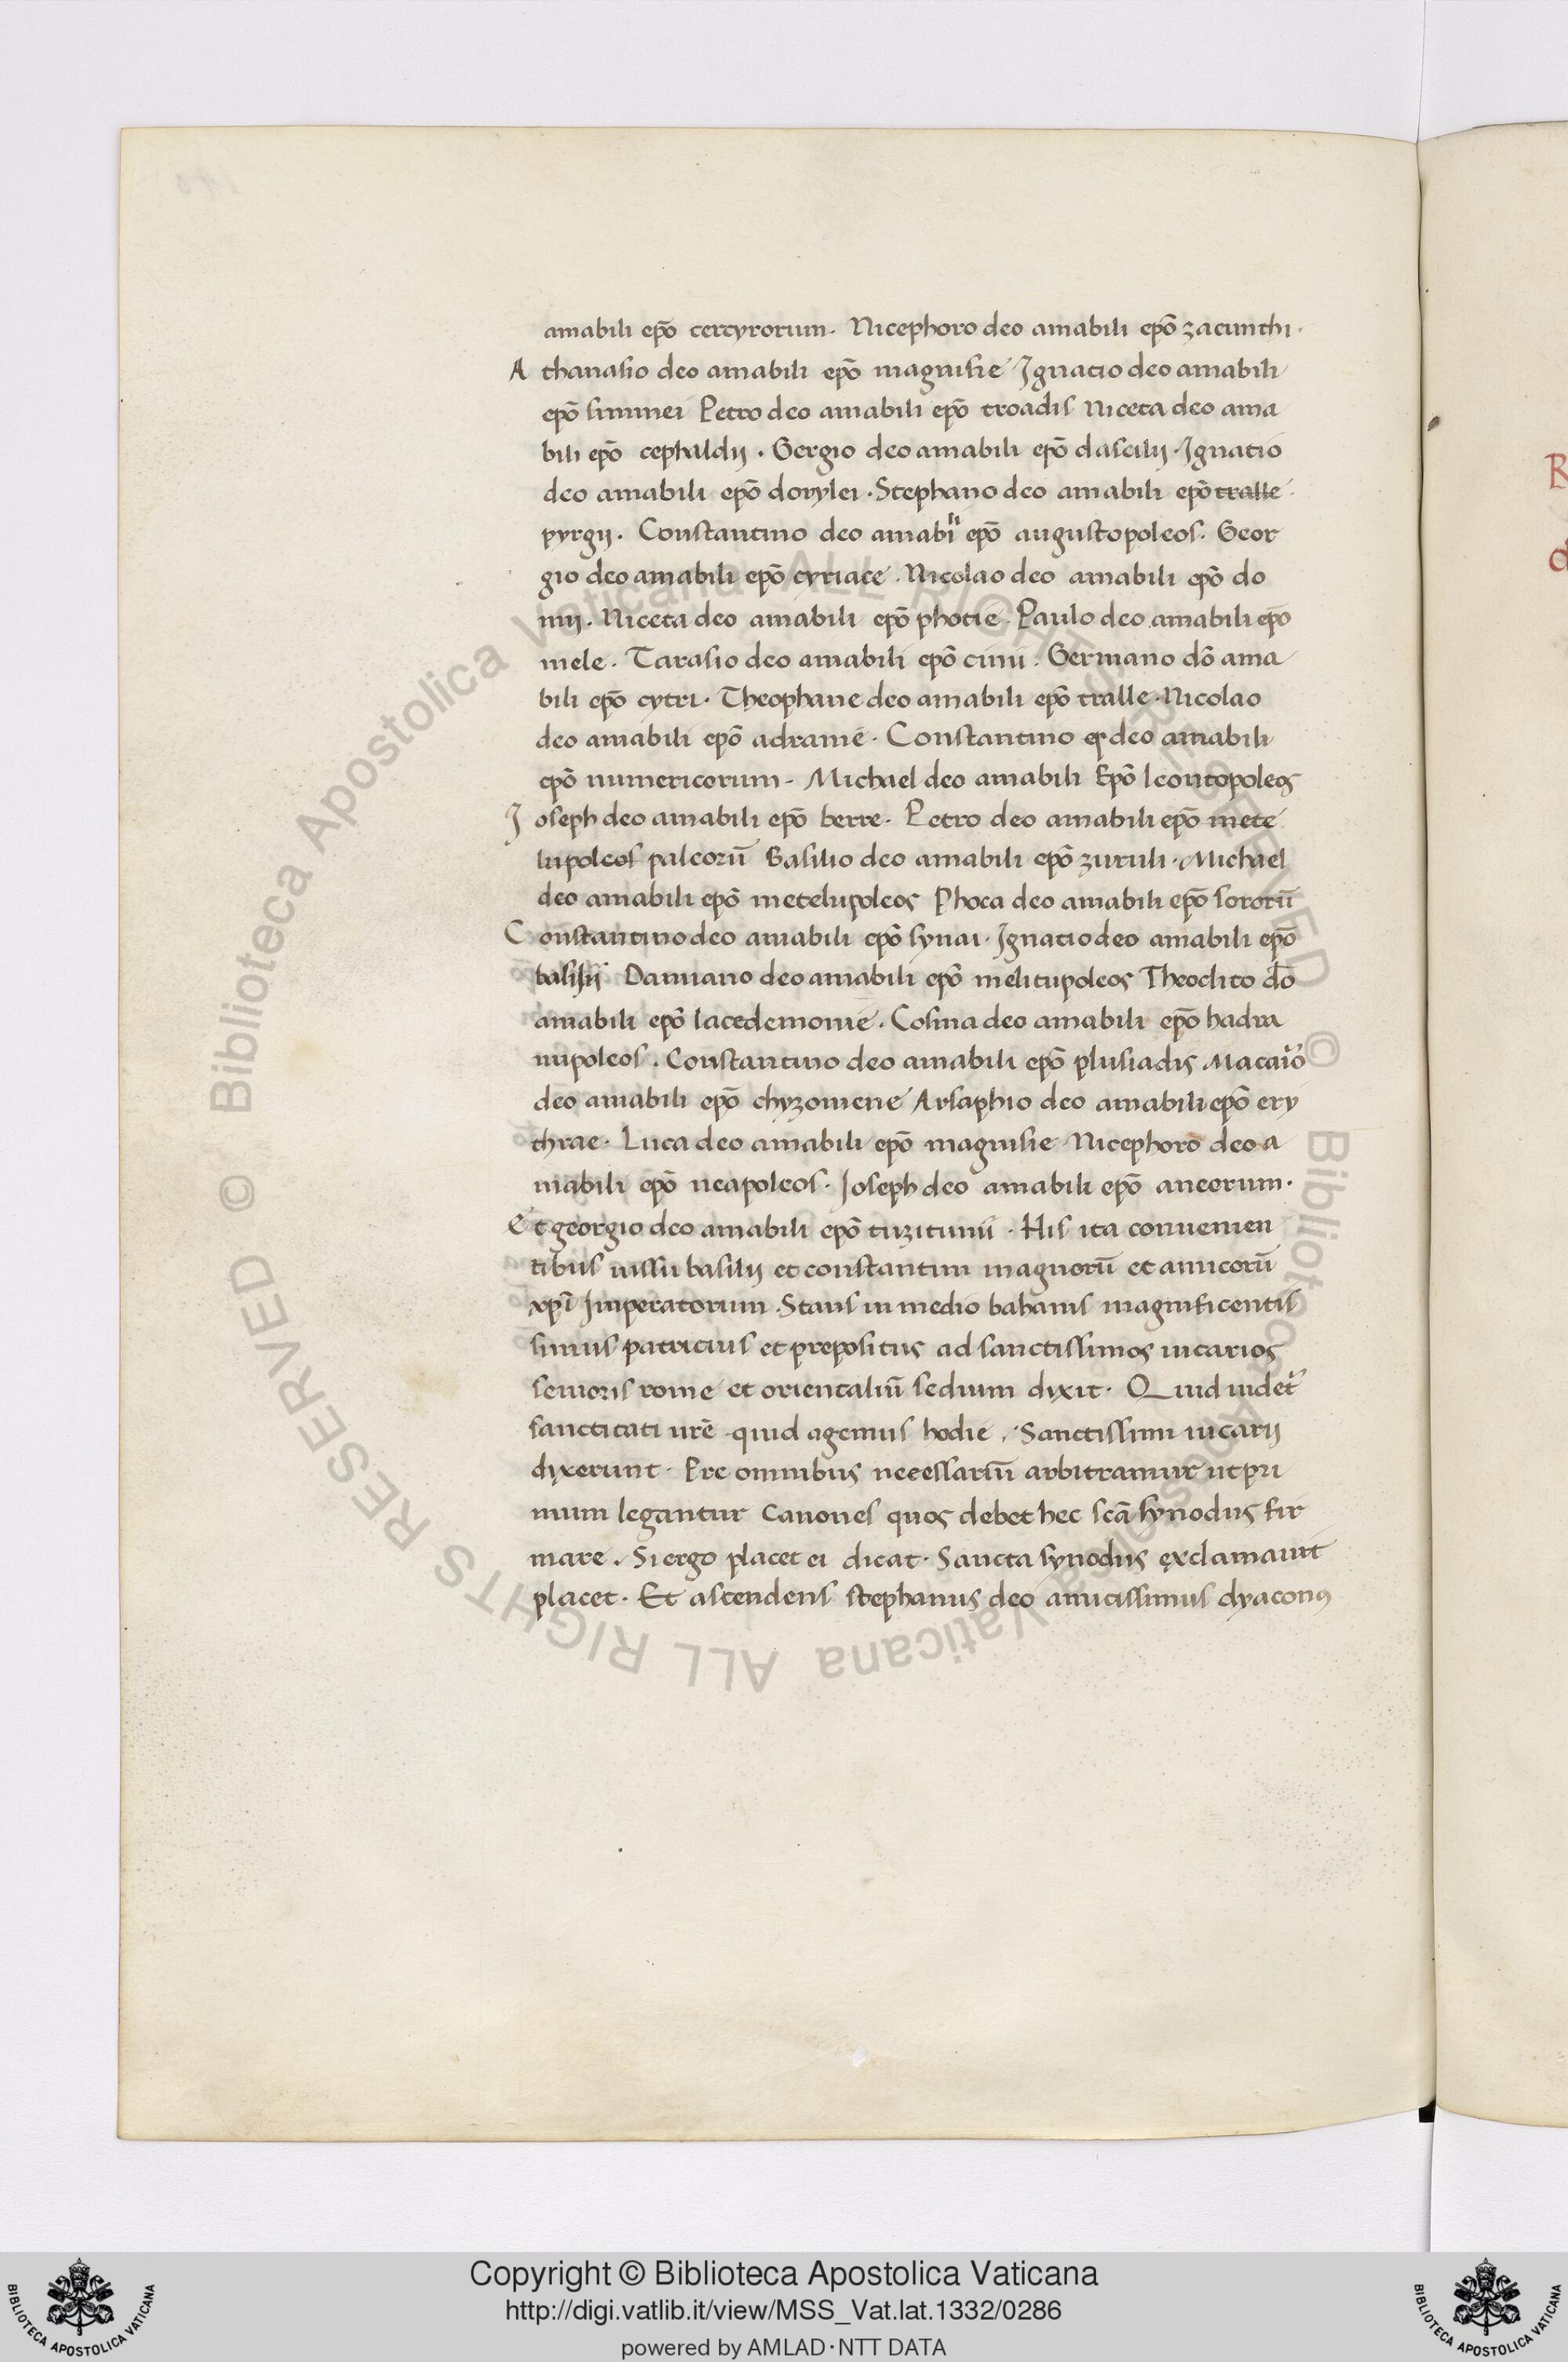 amabili ep̄o cercyrorum. Nicephoro deo amabili ep̄o zacunthi.
A thanasio deo amabili ep̄o magnisie Ignatio deo amabili
ep̄o simmei Petro deo amabili ep̄o troadis Niceta deo ama
bili ep̄o cephaldij. Sergio deo amabili ep̄o dascilij. Ignatio
deo amabili ep̄o dorylei. Stephano deo amabili ep̄o tralle
pyrgij. Constantino deo amabili ep̄o augustopoleos. Geor
gio deo amabili ep̄o cyriace. Nicolao deo amabili ep̄o do
mij. Niceta deo amabili ep̄o photie. Paulo deo amabili ep̄o
mele. Tarasio deo amabili ep̄o cimi. Germano dō ama
bili ep̄o cytri. Theophane deo amabili ep̄o tralle. Nicolao
deo amabili ep̄o adramē. Constantino deo amabili
ep̄o numericorum. Michael deo amabili Ep̄o leontopoleos
J oseph deo amabili ep̄o berre. Petro deo amabili ep̄o mete
lupoleos paleorū Basilio deo amabili ep̄o zuruli. Michael
deo amabili ep̄o metelupoleos Phoca deo amabili ep̄o sororū
C onstantino deo amabili ep̄o synai. Ignatio deo amabili ep̄o
Damiano deo amabili ep̄o melitupoleos Theoclito dō
amabili ep̄o lacedemonie. Cosma deo amabili ep̄o hadra
nupoleos. Constantino deo amabili ep̄o plusiadis Macaiō
deo amabili ep̄o chyzomene Arsaphio deo amabili ep̄o ery
thrae. Luca deo amabili ep̄o magnisie Nicephoro deo a
mabili ep̄o neapoleos. Joseph deo amabili ep̄o aneorum.
E t georgio deo amabili ep̄o tuzitunii. His ita conuenien
tibus iussu basilij et constantini magnorū et amicorū
xp̄i Imperatorum. Stans in medio bahanis magnificentis
simus patricius et prepositus ad sanctissimos uicarios
senioris rome et orientaliū sedium dixit. Quid uidet᷑
sanctitati ur̄e quid agemus hodie. Sanctissimi uicarij
dixerunt. Pre omnibus necessariū arbitramur ut pri
mum legantur Canones quos debet hec scā synodus fir
mare. Si ergo placet ei dicat. Sancta synodus exclamauit
placet. Et ascendens stephanus deo amicissimus dyaconꝰ
R
Copyright © Biblioteca Apostolica Vaticana
http://digi.vatlib.it/view/MSS_Vat.lat.1332/0286
powered by AMLAD·NTT DATA
BIBLIOTECA APOSTOLICA VATICANA
BIBLIOTECA APOSTOLICA VATICANA
© Biblioteca Apostolica Vaticana ALL RIGHTS RESERVED © Biblioteca Apostolica Vaticana ALL RIGHTS RESERVED